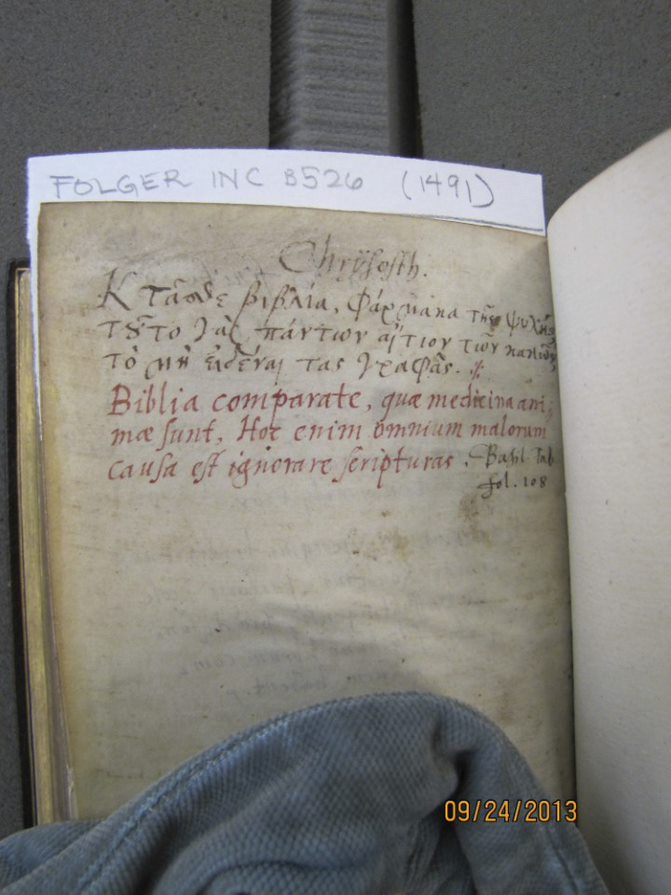 FOLGER INC B526 (1491)
Chrÿsosth.
Κτᾶσθε βιβλία, φάρμακα τῆς ψυχῆς
τȣ̃το γὰρ πάντων αἴτιον τῶν κακῶν,
τὸ μὴ εἰδέναι τὰς γραφάς.
Biblia comparate, quæ medicina ani=
mæ sunt, Hoc enim omnium malorum
causa est ignorare scripturas. Basl. Tab.
fol. 108
09/24/2013